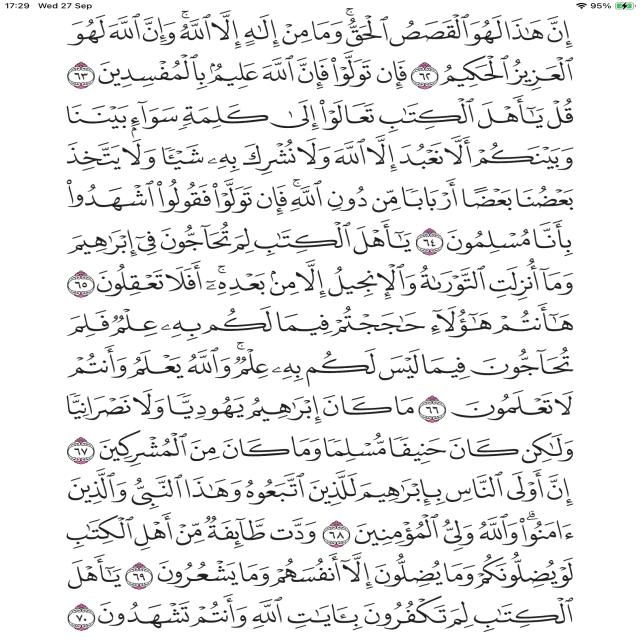 17:29 Wed 27 Sep 95%
إِنَّ هَٰذَا لَهُوَ ٱلْقَصَصُ ٱلْحَقُّ ۚ وَمَا مِنْ إِلَٰهٍ إِلَّا ٱللَّهُ ۚ وَإِنَّ ٱللَّهَ لَهُوَ
ٱلْعَزِيزُ ٱلْحَكِيمُ ٦٢ فَإِن تَوَلَّوْا۟ فَإِنَّ ٱللَّهَ عَلِيمٌۢ بِٱلْمُفْسِدِينَ ٦٣
قُلْ يَٰٓأَهْلَ ٱلْكِتَٰبِ تَعَالَوْا۟ إِلَىٰ كَلِمَةٍ سَوَآءٍۭ بَيْنَنَا
وَبَيْنَكُمْ أَلَّا نَعْبُدَ إِلَّا ٱللَّهَ وَلَا نُشْرِكَ بِهِۦ شَيْـًٔا وَلَا يَتَّخِذَ
بَعْضُنَا بَعْضًا أَرْبَابًا مِّن دُونِ ٱللَّهِ ۚ فَإِن تَوَلَّوْا۟ فَقُولُوا۟ ٱشْهَدُوا۟
بِأَنَّا مُسْلِمُونَ ٦٤ يَٰٓأَهْلَ ٱلْكِتَٰبِ لِمَ تُحَآجُّونَ فِىٓ إِبْرَٰهِيمَ
وَمَآ أُنزِلَتِ ٱلتَّوْرَىٰةُ وَٱلْإِنجِيلُ إِلَّا مِنۢ بَعْدِهِۦٓ ۚ أَفَلَا تَعْقِلُونَ ٦٥
هَٰٓأَنتُمْ هَٰٓؤُلَآءِ حَٰجَجْتُمْ فِيمَا لَكُم بِهِۦ عِلْمٌ فَلِمَ
تُحَآجُّونَ فِيمَا لَيْسَ لَكُم بِهِۦ عِلْمٌ ۚ وَٱللَّهُ يَعْلَمُ وَأَنتُمْ
لَا تَعْلَمُونَ ٦٦ مَا كَانَ إِبْرَٰهِيمُ يَهُودِيًّا وَلَا نَصْرَانِيًّا
وَلَٰكِن كَانَ حَنِيفًا مُّسْلِمًا وَمَا كَانَ مِنَ ٱلْمُشْرِكِينَ ٦٧
إِنَّ أَوْلَى ٱلنَّاسِ بِإِبْرَٰهِيمَ لَلَّذِينَ ٱتَّبَعُوهُ وَهَٰذَا ٱلنَّبِىُّ وَٱلَّذِينَ
ءَامَنُوا۟ ۗ وَٱللَّهُ وَلِىُّ ٱلْمُؤْمِنِينَ ٦٨ وَدَّت طَّآئِفَةٌ مِّنْ أَهْلِ ٱلْكِتَٰبِ
لَوْ يُضِلُّونَكُمْ وَمَا يُضِلُّونَ إِلَّآ أَنفُسَهُمْ وَمَا يَشْعُرُونَ ٦٩ يَٰٓأَهْلَ
ٱلْكِتَٰبِ لِمَ تَكْفُرُونَ بِـَٔايَٰتِ ٱللَّهِ وَأَنتُمْ تَشْهَدُونَ ٧٠